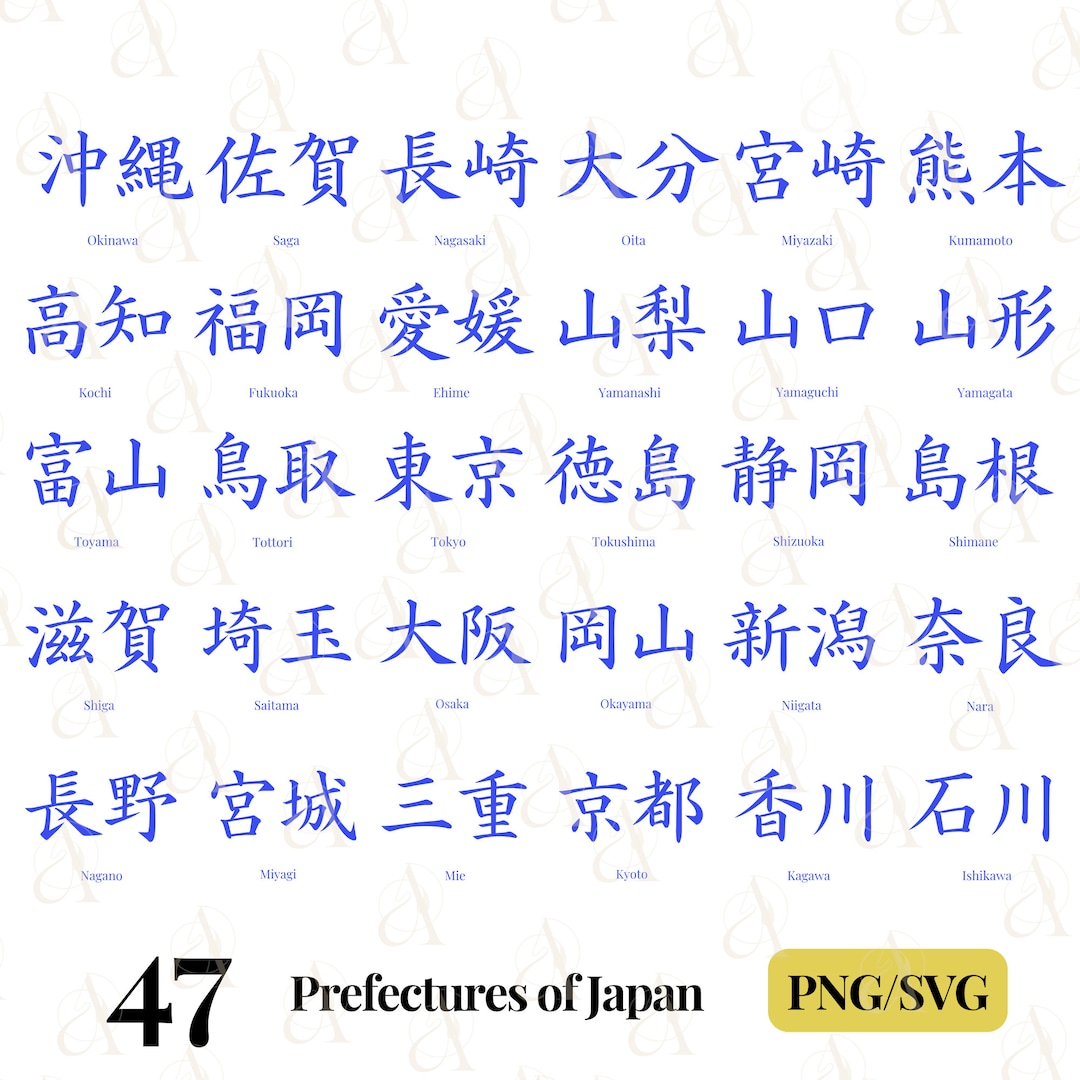 沖縄 佐賀 長崎 大分 宮崎 熊本
Okinawa Saga Nagasaki Oita Miyazaki Kumamoto
高知 福岡 愛媛 山梨 山口 山形
Kochi Fukuoka Ehime Yamanashi Yamaguchi Yamagata
富山 鳥取 東京 徳島 静岡 島根
Toyama Tottori Tokyo Tokushima Shizuoka Shimane
滋賀 埼玉 大阪 岡山 新潟 奈良
Shiga Saitama Osaka Okayama Niigata Nara
長野 宮城 三重 京都 香川 石川
Nagano Miyagi Mie Kyoto Kagawa Ishikawa
47 Prefectures of Japan PNG/SVG